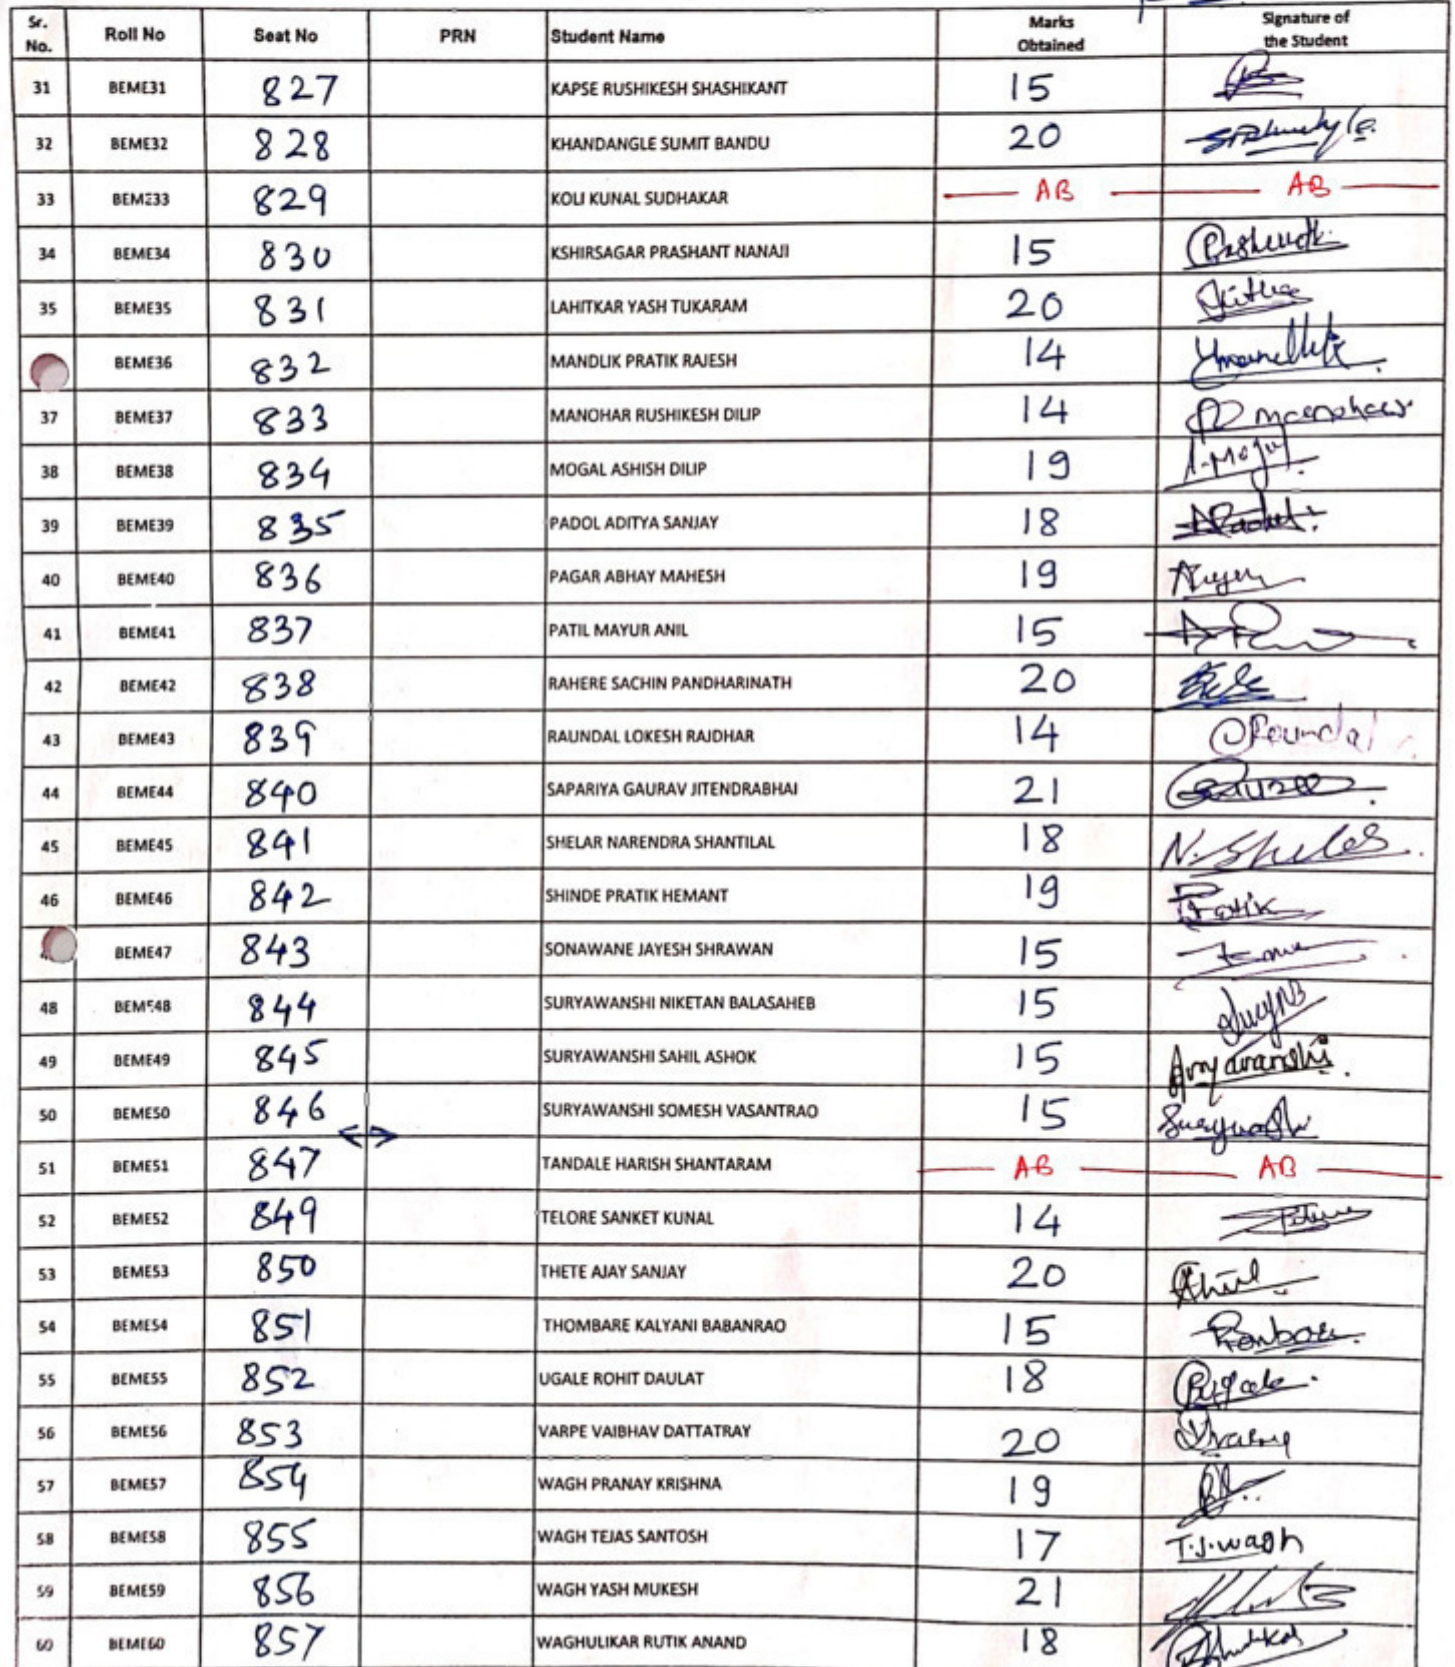 Sr. No. Roll No Seat No PRN Student Name Marks Obtained Signature of the Student
31 BEME31 827 KAPSE RUSHIKESH SHASHIKANT 15
32 BEME32 828 KHANDANGLE SUMIT BANDU 20
33 BEME33 829 KOLI KUNAL SUDHAKAR AB AB
34 BEME34 830 KSHIRSAGAR PRASHANT NANAJI 15
35 BEME35 831 LAHITKAR YASH TUKARAM 20
BEME36 832 MANDLIK PRATIK RAJESH 14
37 BEME37 833 MANOHAR RUSHIKESH DILIP 14
38 BEME38 834 MOGAL ASHISH DILIP 19 A.Mogal
39 BEME39 835 PADOL ADITYA SANJAY 18
40 BEME40 836 PAGAR ABHAY MAHESH 19
41 BEME41 837 PATIL MAYUR ANIL 15
42 BEME42 838 RAHERE SACHIN PANDHARINATH 20
43 BEME43 839 RAUNDAL LOKESH RAJDHAR 14
44 BEME44 840 SAPARIYA GAURAV JITENDRABHAI 21
45 BEME45 841 SHELAR NARENDRA SHANTILAL 18
46 BEME46 842 SHINDE PRATIK HEMANT 19 Pratik
BEME47 843 SONAWANE JAYESH SHRAWAN 15
48 BEME48 844 SURYAWANSHI NIKETAN BALASAHEB 15
49 BEME49 845 SURYAWANSHI SAHIL ASHOK 15
50 BEME50 846 SURYAWANSHI SOMESH VASANTRAO 15
51 BEME51 847 TANDALE HARISH SHANTARAM AB AB
52 BEME52 849 TELORE SANKET KUNAL 14
53 BEME53 850 THETE AJAY SANJAY 20
54 BEME54 851 THOMBARE KALYANI BABANRAO 15
55 BEME55 852 UGALE ROHIT DAULAT 18
56 BEME56 853 VARPE VAIBHAV DATTATRAY 20
57 BEME57 854 WAGH PRANAY KRISHNA 19
58 BEME58 855 WAGH TEJAS SANTOSH 17 T.J.wagh
59 BEME59 856 WAGH YASH MUKESH 21
60 BEME60 857 WAGHULIKAR RUTIK ANAND 18